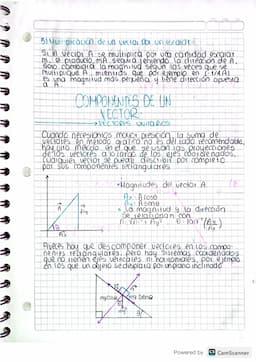 5) Multiplicación de un vector por un escalar
Si un vector A se multiplica por una cantidad escalar
m, el producto mA seguirá teniendo la dirección de A,
solo cambiará la magnitud según las veces que se
multiplique A, mientras que por ejemplo en (-1/4A)
es una magnitud más pequeña y tiene dirección opuesta
a A.
COMPONENTES DE UN
VECTOR
VECTORES UNITARIOS
Cuando necesitamos mayor precisión, la suma de
vectores en método gráfico no es del todo recomendable,
hay otro método en el que se usan las proyecciones
de los vectores a lo largo de los ejes coordenados.
Cualquier vector se puede describir por completo
por sus componentes rectangulares.
Magnitudes del vector A
Ax= A cosθ
Ay= A senθ
La magnitud y la dirección
se relacionan con
A=√Ax²+Ay² θ=tan⁻¹(Ay/Ax)
A veces hay que descomponer vectores en los compo-
nentes rectangulares, pero hay sistemas coordenados
que no tienen ejes verticales ni horizontales, por ejemplo
en los que un objeto se desplaza por un plano inclinado
y
x
mg cosθ
mg senθ
Powered by CS CamScanner